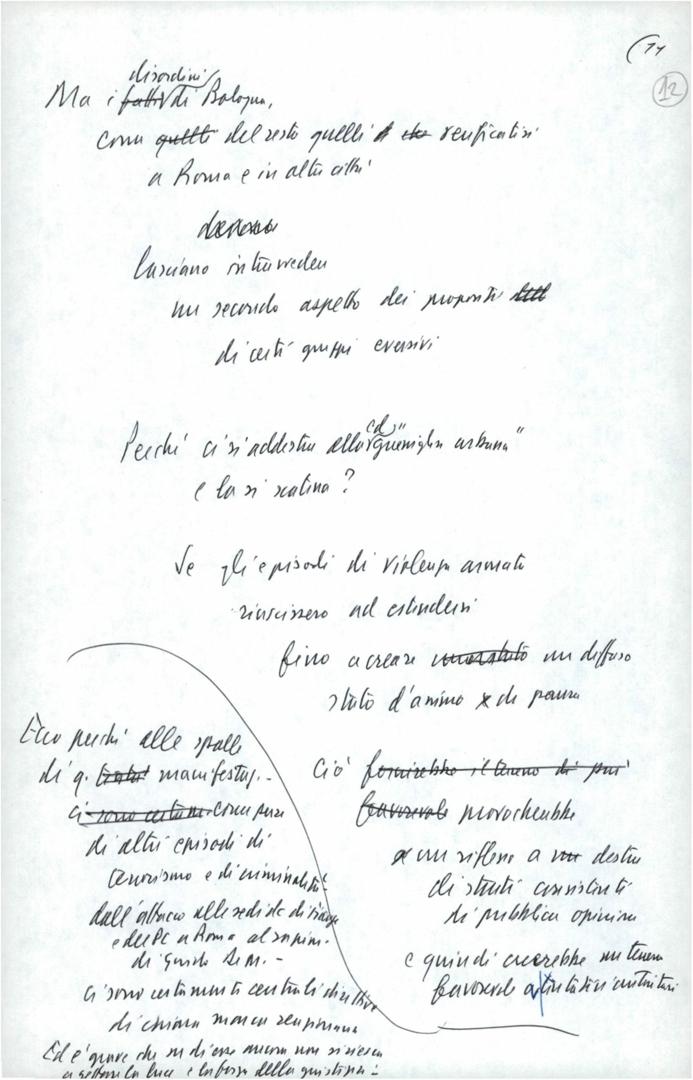 (11
12
disordini
Ma i fatti di Bologna,
come quelli del resto quelli che verificatisi
a Roma e in altre città
lasciano intravedere
un secondo aspetto dei propositi
di certi gruppi eversivi
Perché ci si addestra alla "guerriglia urbana"
e la si scatena?
Se gli episodi di violenza armata
riuscissero ad estendersi
fino a creare uno stato un diffuso
stato d'animo di paura
Ciò fornirebbe il terreno di più
favorevole provocherebbe
un riflesso a destra
di strati consistenti
di pubblica opinione
e quindi creerebbe un terreno
favorevole a
Ecco perché alle spalle
di q. manifestaz. -
ci sono certame come pure
di altri episodi di
terrorismo e di criminalità
dall'attacco alle sedi dc di
e del PC a Roma al rapim.
di Guido D. M. -
ci sono certamente centrali direttive
di chiara marca reazionaria
Ed è grave che su di esse ancora non si riesca
a gettare la luce e la forza della giustizia -